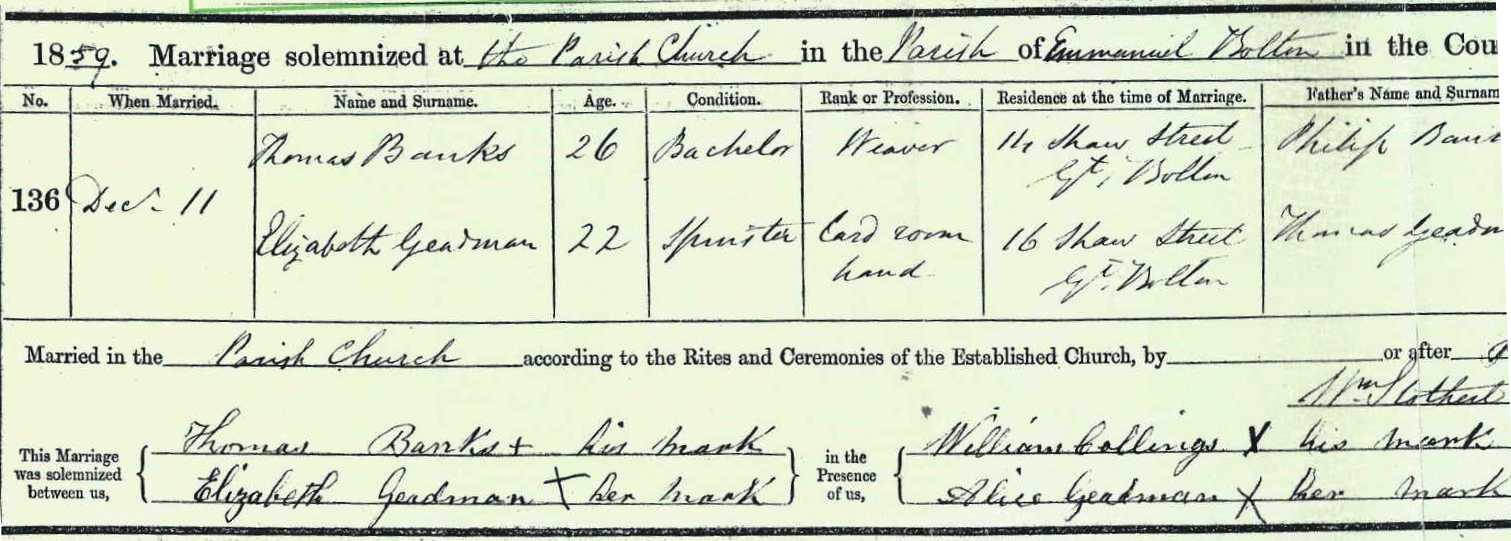 1859. Marriage solemnized at the Parish Church in the Parish of Emmanuel Bolton in the Cou
No. When Married. Name and Surname. Age. Condition. Rank or Profession. Residence at the time of Marriage. Father's Name and Surnam
136 Decr 11 Thomas Banks 26 Bachelor Weaver 14 Shaw Street Philip Ban
Gt. Bolton
Elizabeth Geadman 22 Spinster Card room 16 Shaw Street Thomas Geadm
hand Gt. Bolton
Married in the Parish Church according to the Rites and Ceremonies of the Established Church, by or after
Wm Slothert
This Marriage was solemnized between us, Thomas Banks + his mark in the Presence of us, William Collings X his mark
Elizabeth Geadman + her mark Alice Geadman X her mark